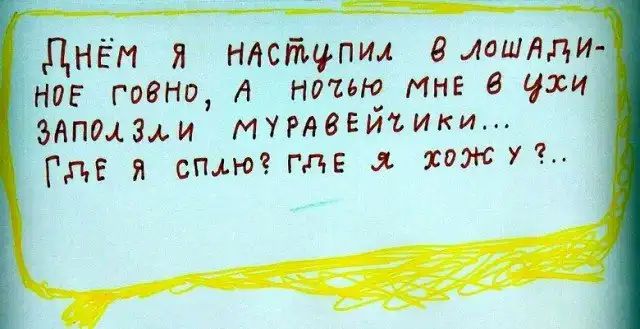 Днём я наступил в лошади-
ное говно, а ночью мне в ухи
заползли муравейчики...
Где я сплю? где я хожу?..